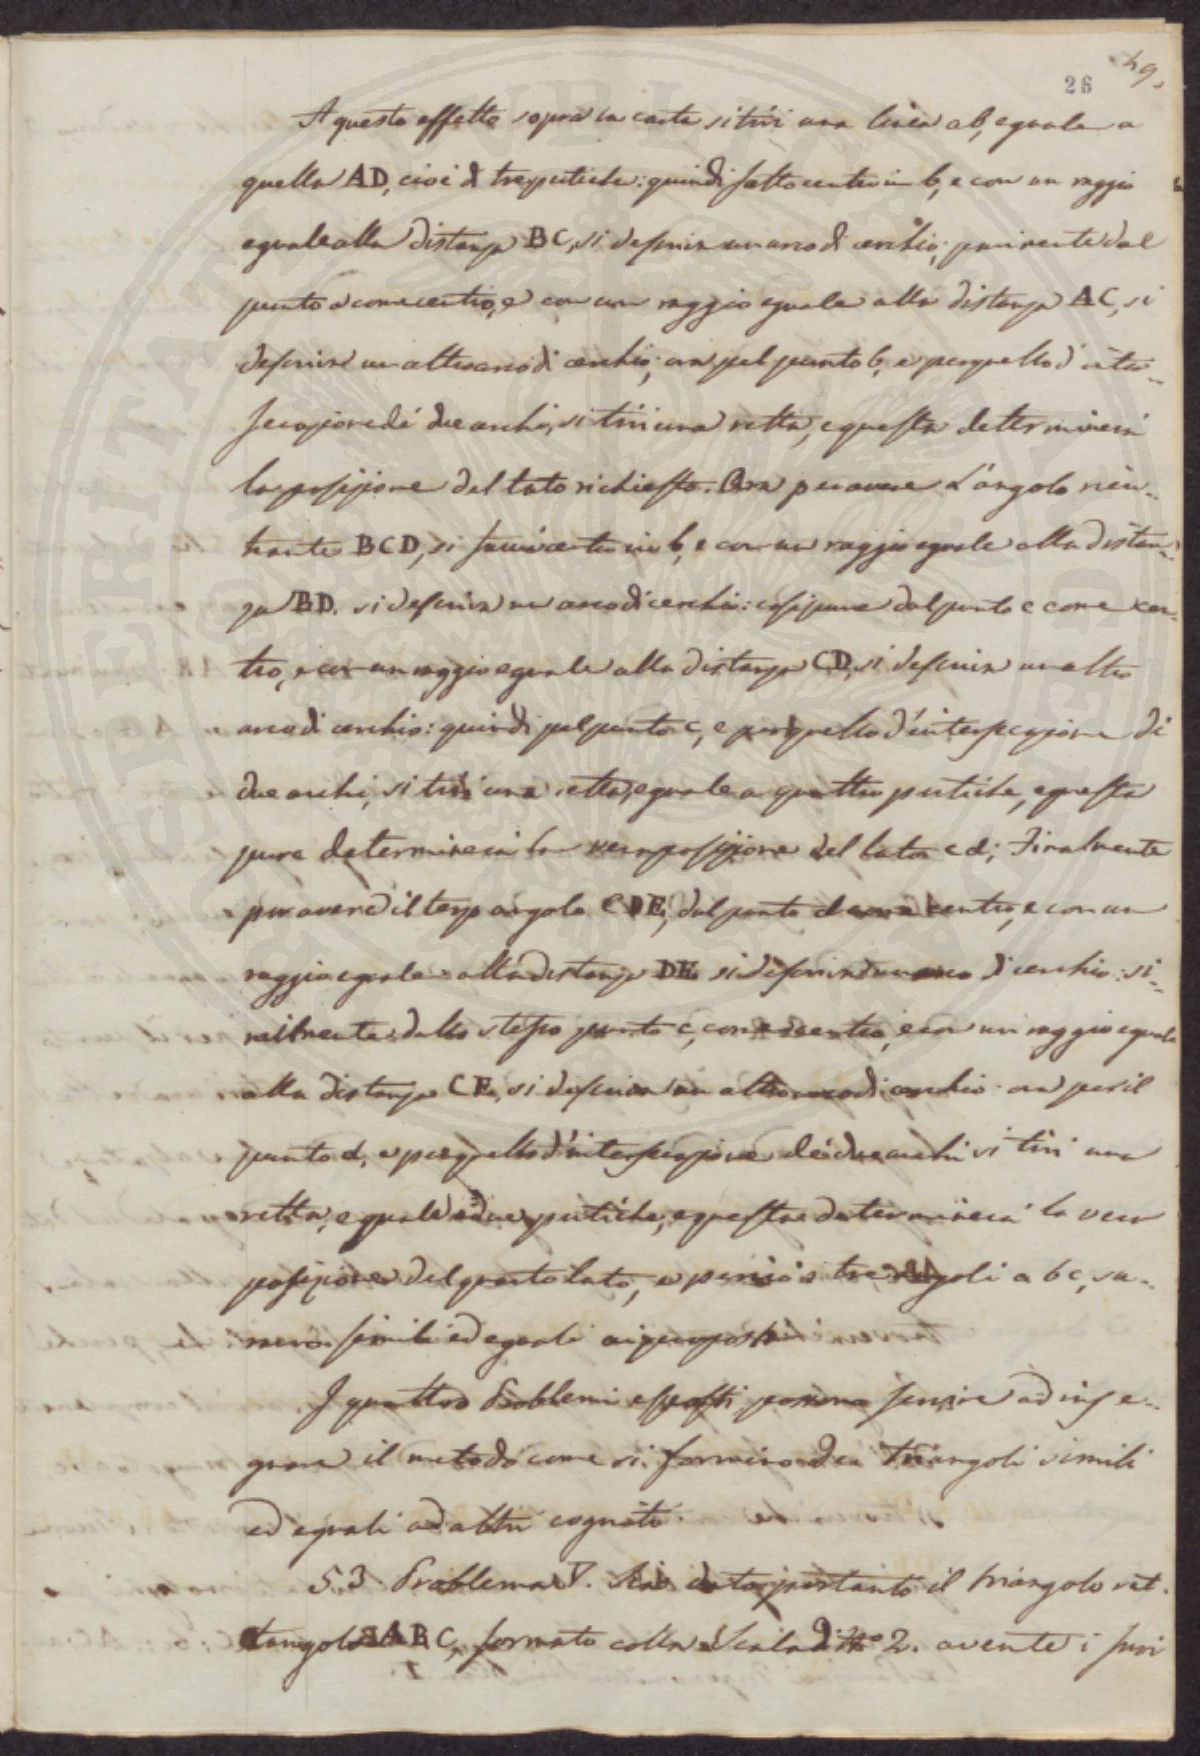 26 49.
A questo effetto sopra la carta si tiri una linea ab, eguale a
quella AD, cioè di tre pertiche: quindi fatto centro in b, e con un raggio
eguale alla distanza BC, si descriva un arco di cerchio; parimente dal
punto a come centro, e con un raggio eguale alla distanza AC, si
descriva un altro arco di cerchio; ora pel punto b, e per quello d'inter-
secazione dei due archi, si tiri una retta, e questa determinerà
la posizione del lato richiesto. Ora per avere l'angolo rien-
trante BCD, si faccia centro in b, e con un raggio eguale alla distan-
za BD. si descriva un arco di cerchio: così pure dal punto c come cen-
tro, e con un raggio eguale alla distanza CD, si descriva un altro
arco di cerchio: quindi pel punto c, e per quello d'intersecazione di
due archi, si tiri una retta, eguale a quattro pertiche, e questa
pure determinerà la vera posizione del lato cd; Finalmente
per avere il terzo angolo CDE, dal punto d come centro, e con un
raggio eguale alla distanza DE si descriva un arco di cerchio: si-
milmente dallo stesso punto c, come centro, e con un raggio eguale
alla distanza CE, si descriva un altro arco di cerchio: ora per il
punto d, e per quello d'intersecazione dei due archi si tiri una
retta, eguale a due pertiche, e questa determinerà la vera
posizione del quarto lato, e perciò i tre angoli a b c, sa-
ranno simili ed eguali ai proposti.
I quattro Problemi esposti, possono servire ad inse-
gnare il metodo come si formino dei Triangoli simili
ed eguali ad altri cogniti.
53. Problema V. Sia dato pertanto il triangolo ret-
tangolo ABC, formato colla Scala di N.º 2. avente i suoi